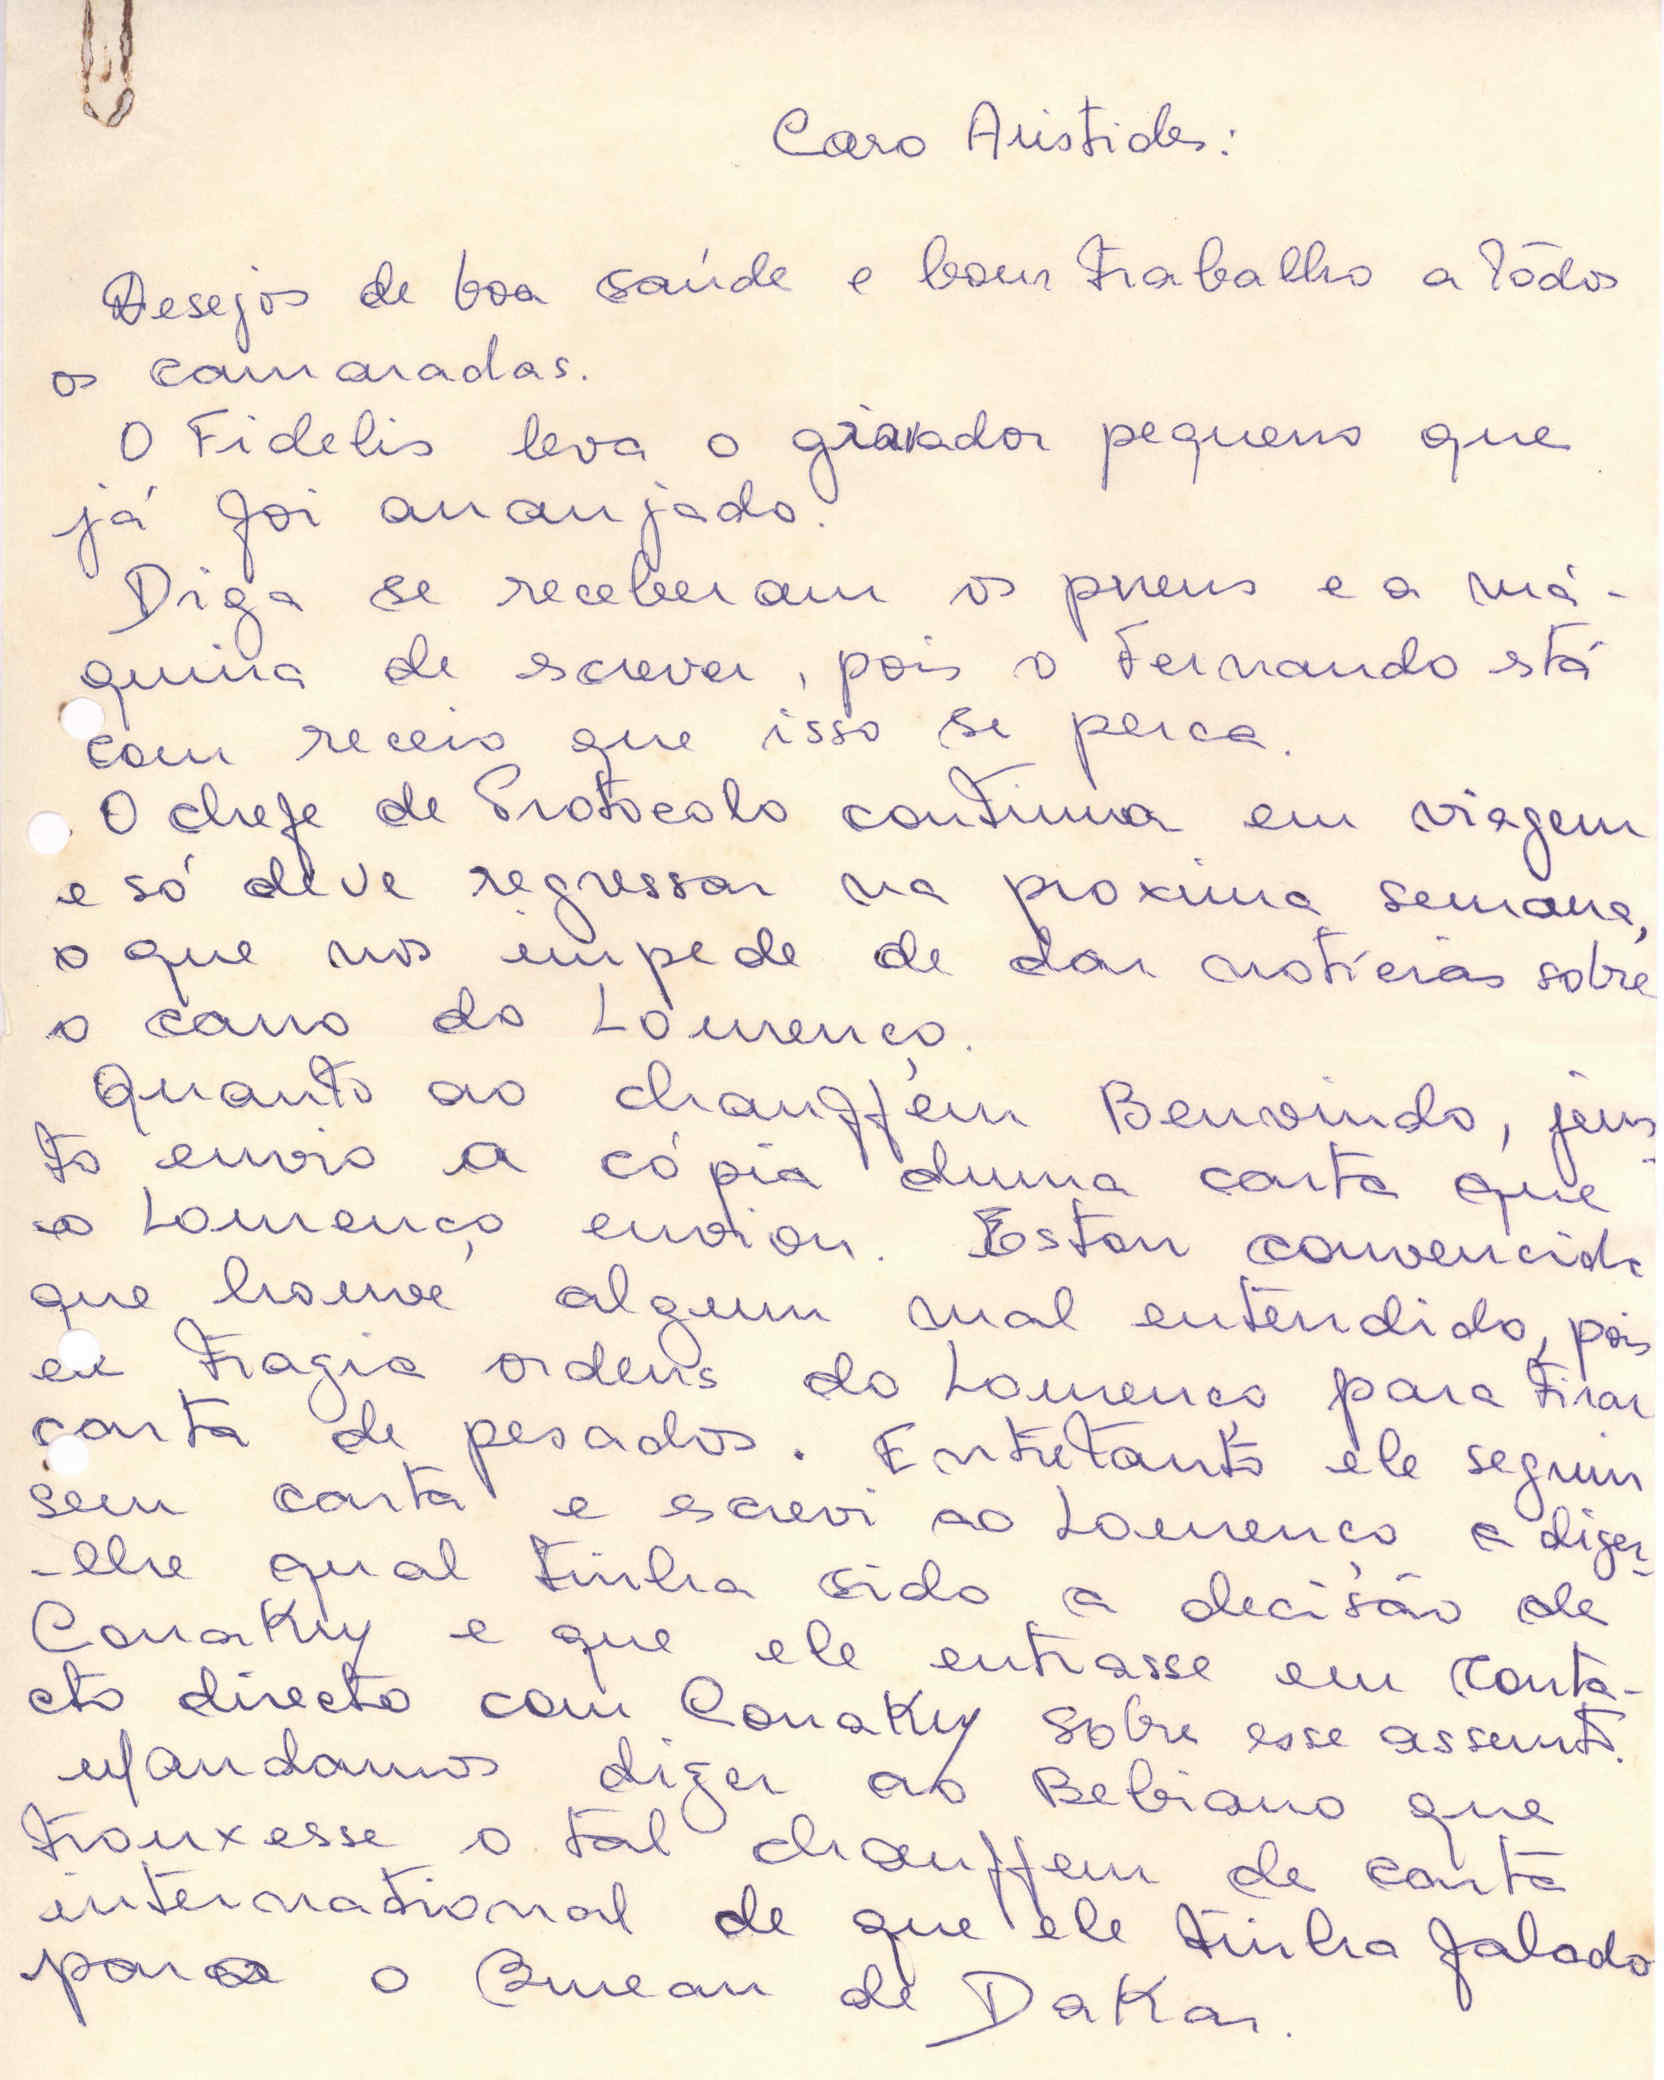 Caro Aristides:
Desejos de boa saúde e bom trabalho a tôdos
os camaradas.
O Fidelis leva o gravador pequeno que
já foi arranjado.
Diga se receberam os pneus e a má-
quina de escrever, pois o Fernando está
com receio que isso se perca.
O chefe de Protocolo continua em viagem
e só deve regressar na proxima semana,
o que nos impede de dar notícias sobre
o carro do Lourenço.
Quanto ao chauffeur Benvindo, jun-
to envio a cópia duma carta que
o Lourenço enviou. Estou convencida
que houve algum mal entendido, pois
ele tragia ordens do Lourenço para tirar
carta de pesados. Entretanto ele seguiu
sem carta e escrevi ao Lourenço a diger-
-lhe qual tinha sido a decisão de
Conakry e que ele entrasse em conta-
cto directo com Conakry sobre esse assunto.
Mandamos diger ao Bebiano que
trouxesse o tal chauffeur de carta
international de que ele tinha falado
para o Bureau de Dakar.